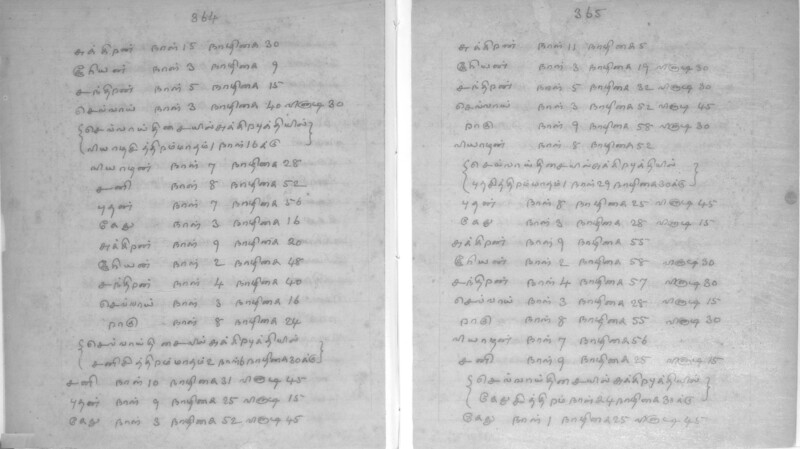 364
சுக்கிரன் நாள் 15 நாழிகை 30
சூரியன் நாள் 3 நாழிகை 9
சந்திரன் நாள் 5 நாழிகை 15
செவ்வாய் நாள் 3 நாழிகை 40 விநாடி 30
{செவ்வாய்திசையில் சுக்கிரபுத்தியில்}
{வியாழசித்திரம் மாதம் 1 நாள் 16க்கு}
வியாழன் நாள் 7 நாழிகை 28
சனி நாள் 8 நாழிகை 52
புதன் நாள் 7 நாழிகை 56
கேது நாள் 3 நாழிகை 16
சுக்கிரன் நாள் 9 நாழிகை 20
சூரியன் நாள் 2 நாழிகை 48
சந்திரன் நாள் 4 நாழிகை 40
செவ்வாய் நாள் 3 நாழிகை 16
ராகு நாள் 8 நாழிகை 24
{செவ்வாய்திசையில் சுக்கிரபுத்தியில்
சனிசித்திரம் மாதம் 2 நாள் 6 நாழிகை 30க்கு}
சனி நாள் 10 நாழிகை 31 விநாடி 45
புதன் நாள் 9 நாழிகை 25 விநாடி 15
கேது நாள் 3 நாழிகை 52 விநாடி 45
365
சுக்கிரன் நாள் 11 நாழிகை 5
சூரியன் நாள் 3 நாழிகை 19 விநாடி 30
சந்திரன் நாள் 5 நாழிகை 32 விநாடி 30
செவ்வாய் நாள் 3 நாழிகை 52 விநாடி 45
ராகு நாள் 9 நாழிகை 58 விநாடி 30
வியாழன் நாள் 8 நாழிகை 52
{செவ்வாய்திசையில் சுக்கிரபுத்தியில்
புதசித்திரம் மாதம் 1 நாள் 29 நாழிகை 30க்கு}
புதன் நாள் 8 நாழிகை 25 விநாடி 45
கேது நாள் 3 நாழிகை 28 விநாடி 15
சுக்கிரன் நாள் 9 நாழிகை 55
சூரியன் நாள் 2 நாழிகை 58 விநாடி 30
சந்திரன் நாள் 4 நாழிகை 57 விநாடி 30
செவ்வாய் நாள் 3 நாழிகை 28 விநாடி 15
ராகு நாள் 8 நாழிகை 55 விநாடி 30
வியாழன் நாள் 7 நாழிகை 56
சனி நாள் 9 நாழிகை 25 விநாடி 15
{செவ்வாய்திசையில் சுக்கிரபுத்தியில்
கேதுசித்திரம் நாள் 24 நாழிகை 30க்கு}
கேது நாள் 1 நாழிகை 25 விநாடி 45